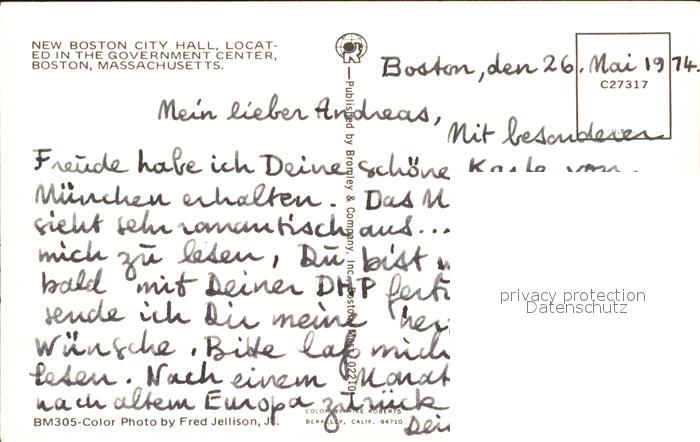 NEW BOSTON CITY HALL, LOCAT-
ED IN THE GOVERNMENT CENTER,
BOSTON, MASSACHUSETTS.
Boston, den 26. Mai 1974.
C27317
Mein lieber Andreas,
Mit besonderer
Freude habe ich Deine schöne Karte von
München erhalten. Das M
sieht sehr romantisch aus...
mich zu lesen, Du bist
bald mit Deiner DHP ferti
sende ich Dir meine her
Wünsche. Bitte laß mich
lesen. Nach einem Monat
nach altem Europa zurück
Dein
Published by Bromley & Company, Inc. Boston, Mass. 02210
privacy protection
Datenschutz
COLOR BY MIKE ROBERTS
BERKELEY, CALIF. 94710
BM305-Color Photo by Fred Jellison, Jr.